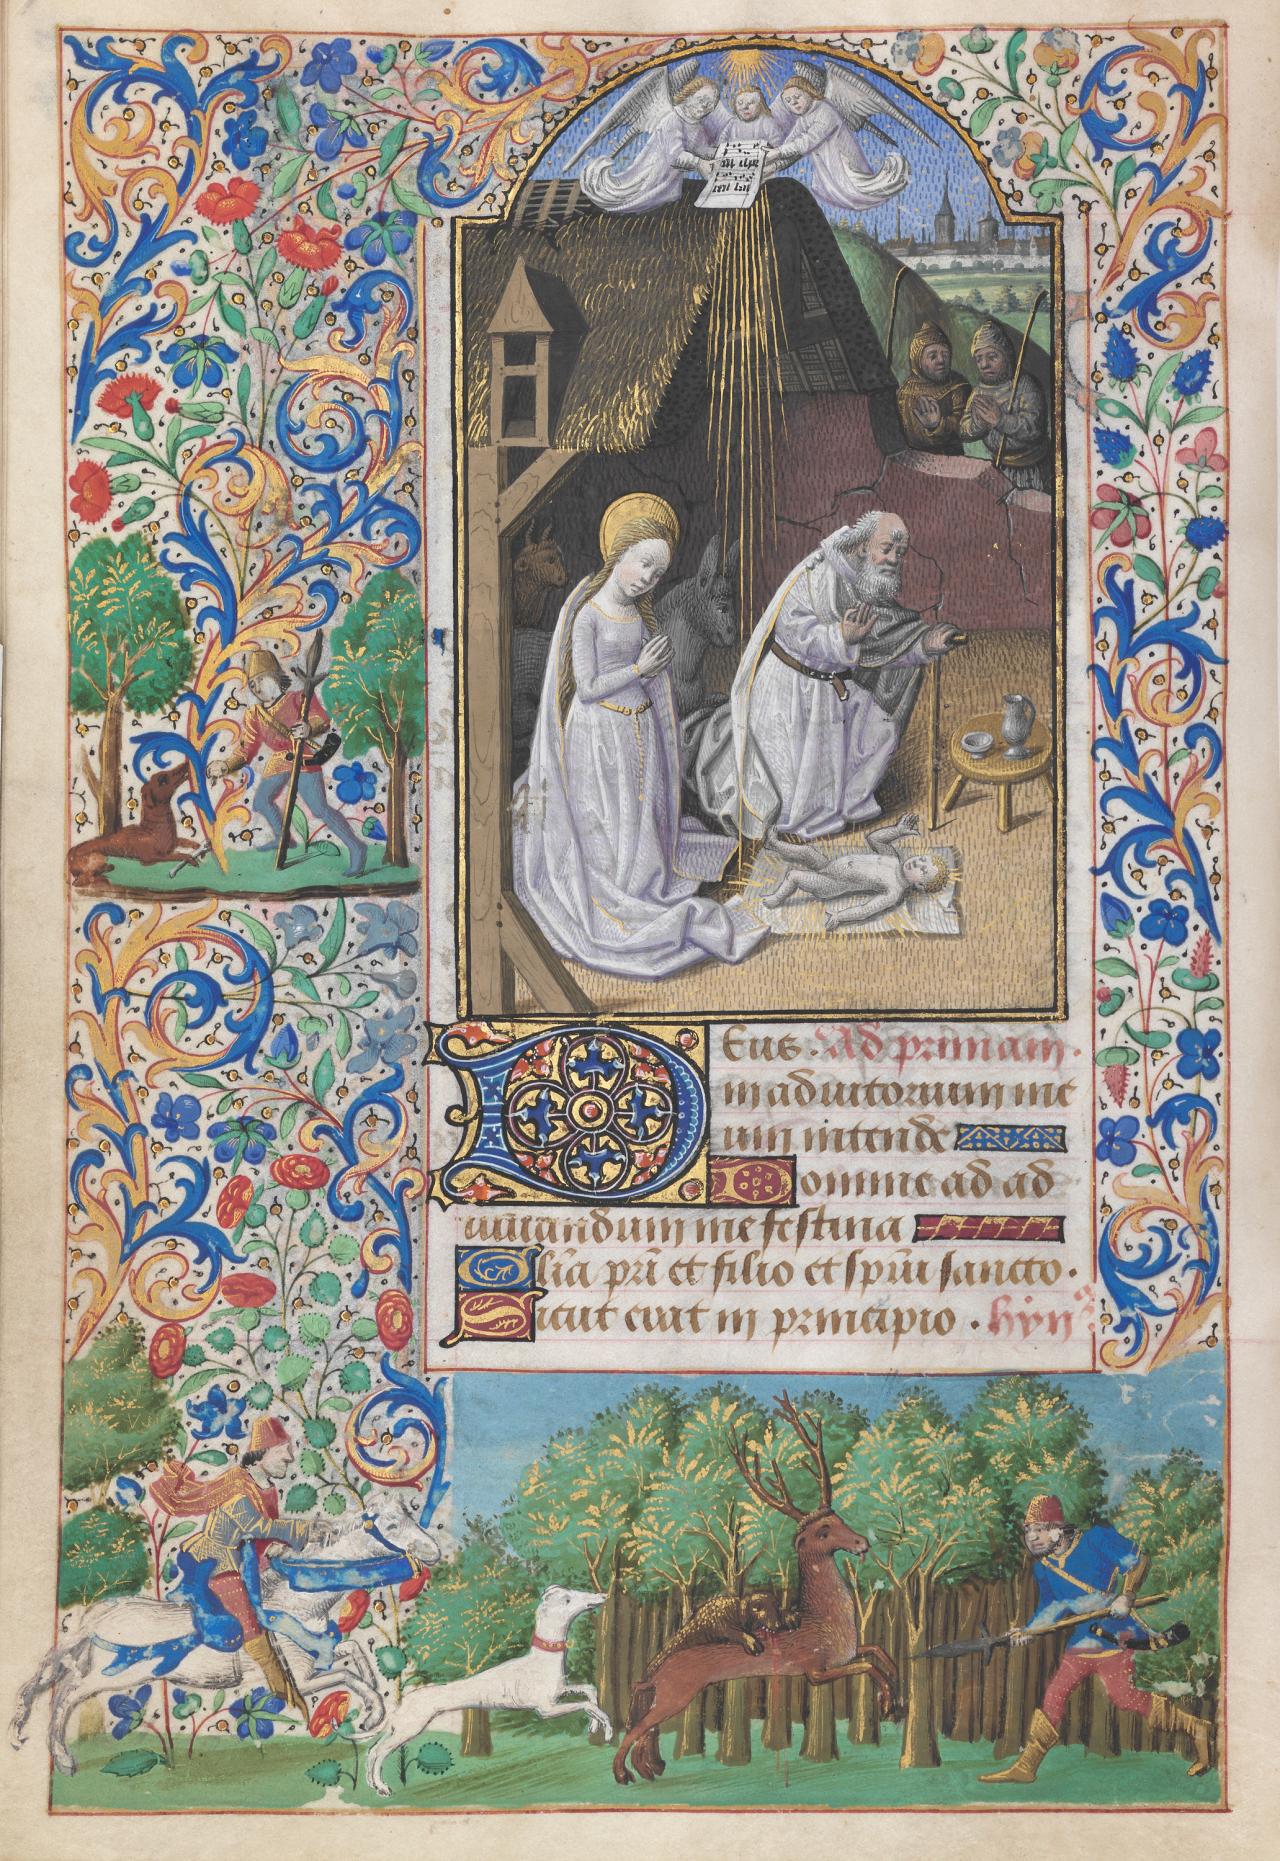 Deus. Ad primam.
in adiutorium me
um intende
Domine ad ad
iuuandum me festina
Glīa pr̄i et filio et spr̄ui sancto.
Sicut erat in principio. hÿm̄